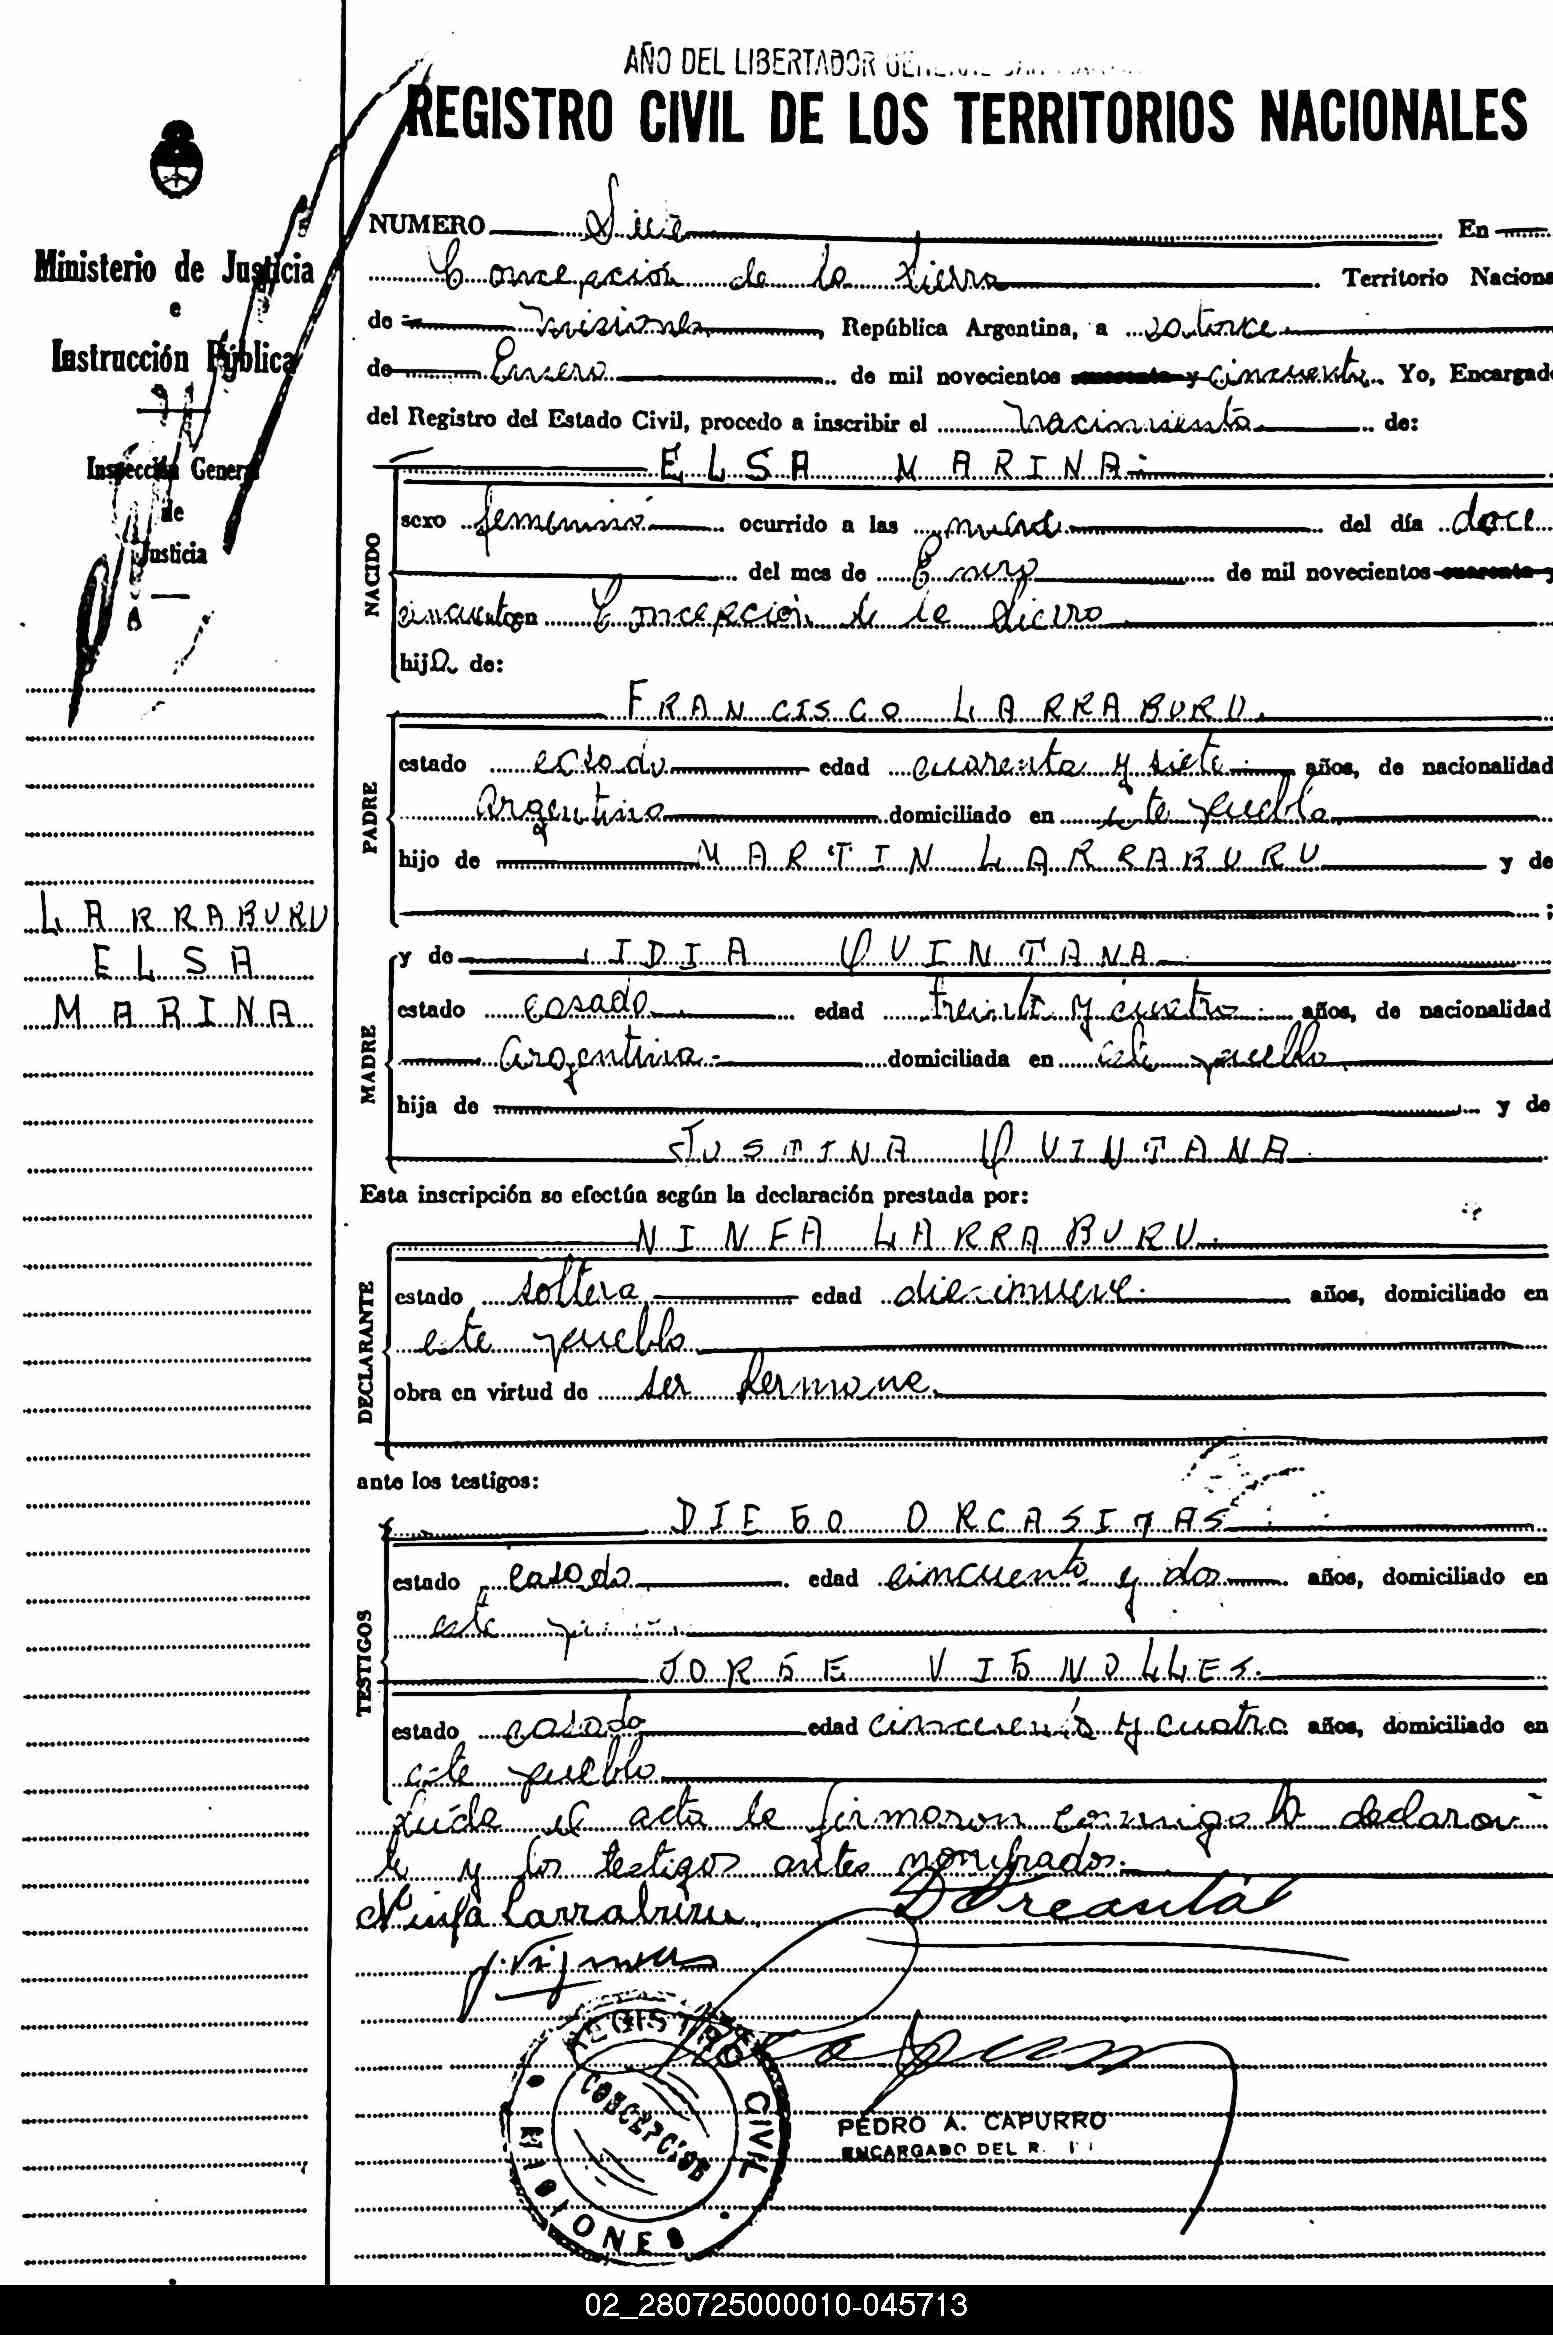 AÑO DEL LIBERTADOR GENERAL SAN
REGISTRO CIVIL DE LOS TERRITORIOS NACIONALES
Ministerio de Justicia
e
Instrucción Pública
Inspección General
de
Justicia
LARRABURU
ELSA
MARINA
NUMERO En
Concepción de la Sierra Territorio Naciona
de Misiones, República Argentina, a catorce
de Enero de mil novecientos cuarenta y cincuenta. Yo, Encargado
del Registro del Estado Civil, procedo a inscribir el nacimiento de:
NACIDO
ELSA MARINA
sexo femenino ocurrido a las nueve del día doce
del mes de Enero de mil novecientos cuarenta y
cincuenta en Concepción de la Sierra
hija de:
PADRE
FRANCISCO LARRABURU
estado casado edad cuarenta y siete años, de nacionalidad
Argentino domiciliado en este pueblo
hijo de MARTIN LARRABURU y de
;
MADRE
y de LIDIA QUINTANA
estado casada edad treinta y cuatro años, de nacionalidad
Argentina domiciliada en este pueblo
hija de y de
JUSTINA QUINTANA
Esta inscripción se efectúa según la declaración prestada por:
DECLARANTE
NINFA LARRABURU
estado soltera edad diecinueve años, domiciliado en
este pueblo
obra en virtud de ser hermana
ante los testigos:
TESTIGOS
DIEGO ORCASITAS
estado casado edad cincuenta y dos años, domiciliado en
este
JORGE VIGNOLLES
estado casado edad cincuenta y cuatro años, domiciliado en
este pueblo
Leída el acta la firmaron conmigo la declaran-
te y los testigos antes nombrados.
Ninfa Larraburu
REGISTRO CIVIL
CONCEPCIÓN
MISIONES
PEDRO A. CAPURRO
ENCARGADO DEL R.
02_280725000010-045713